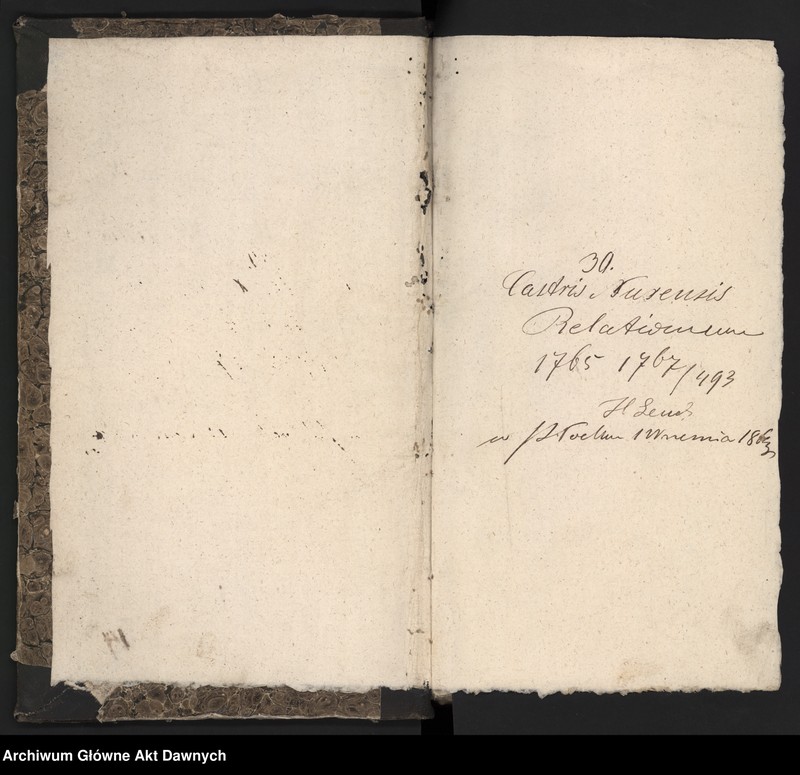 30.
Castris Nurensis
Relationum
1765 1767/493
H Lend
w Płocku 1 Wrzesnia 186
Archiwum Główne Akt Dawnych